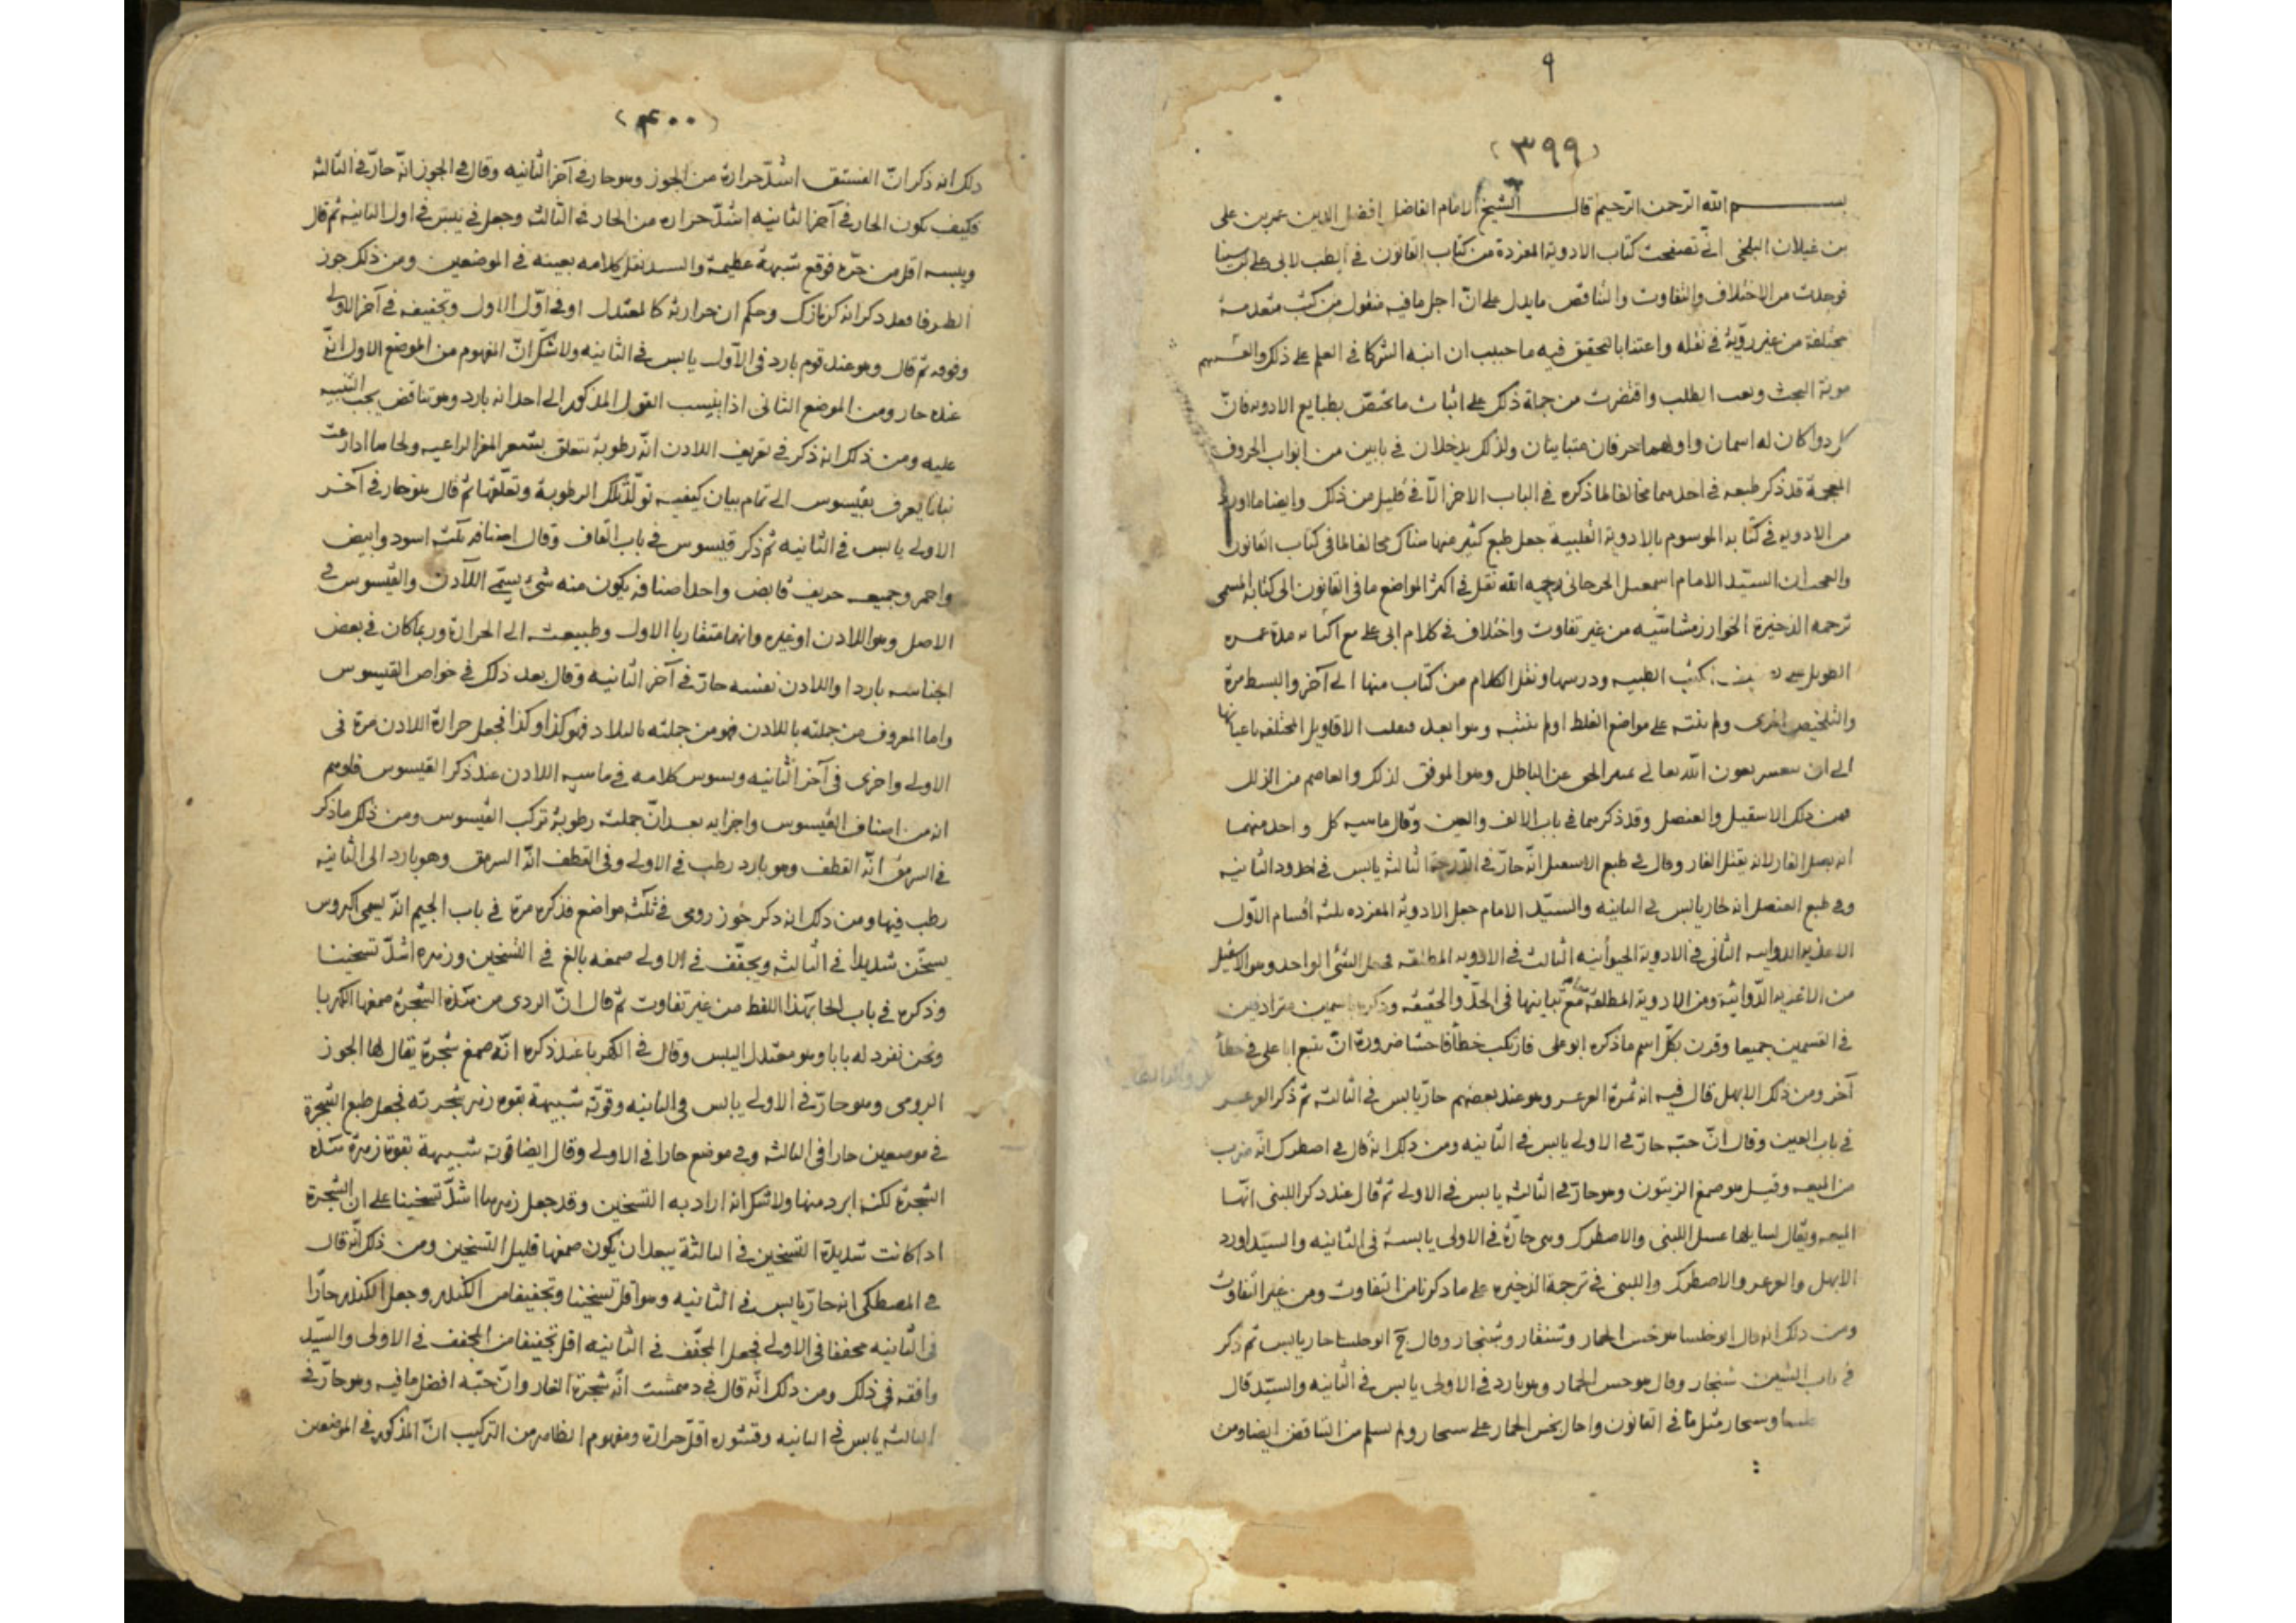 ٩
(٣٩٩)
بسم الله الرحمن الرحيم قال الشيخ الامام الفاضل افضل الدين عمر بن على
بن غيلان البلخى انى تصفحت كتاب الادوية المفردة من كتاب القانون فى الطب لابى على بن سينا
فوجدت من الاختلاف والتفاوت والتناقض ما يدل على ان اجل ما فيه منقول من كتب متقدمة
مختلفة من غير روية فى نقله واعتدا بالتحقيق فيه فاحببت ان انبه الشركا فى العلم على ذلك
موبة البحث وتعب الطلب واقتصرت من جملة ذلك على اثبات ما يختص بطبايع الادويه فان
كل دوا كان له اسمان واولهما حرفان متباينان ولذلك يدخلان فى بابين من ابواب الحروف
المعجمة قد ذكر طبعه فى احدهما مخالفا لما ذكره فى الباب الاخر الا فى قليل من ذلك وايضا ما اورد
من الادويه فى كتابه الموسوم بالادوية القلبية جعل طبع كثير منها هناك مخالفا لما فى كتاب القانون
والعجب ان السيد الامام اسمعيل الجرجانى رحمه الله نقل فى اكثر المواضع ما فى القانون الى كتابه المسمى
ترجمه الذخيرة الخوارزمشاهيه من غير تفاوت واختلاف فى كلام ابى على مع مدة عمره
الطويل كتب الطبيه ودرسها ونقل الكلام من كتاب منها الى آخر والبسط مرة
والتلخيص اخرى ولم ينبه على مواضع الغلط او لم ينتبه وهو ابعد الاقاويل المختلفه باعيانها
الى ان بعون الله تعالى الحق عن الباطل وهو الموفق لذلك والعاصم من الزلل
فمن ذلك الاسقيل والعنصل وقد ذكرهما فى باب الالف والعين وقال ماهيه كل واحد منهما
انه بصل الفار لانه يقتل الفار وقال فى طبع الاسقيل انه حار فى الدرجة الثالثه يابس فى حدود الثانيه
وفى طبع العنصل انه حار يابس فى الثانيه والسيد الامام جعل الادوية المفرده ثلثه اقسام الاول
الاغذيه الدوائيه الثانى فى الادوية الحيوانيه الثالث فى الادويه المطلقه فجعل الشئ الواحد وهو الاسقيل
من الاغذيه الدوائيه ومن الادوية المطلقة مع تباينها فى الحد والحقيقه وذكره باسمين مترادفين
فى القسمين جميعا وقرن بكل اسم ما ذكره ابو على فارتكب خطأ فاحشا ضرورة ان تتبع ابا على فى خطأ
آخر ومن ذلك الابهل قال فيه انه ثمرة العرعر وهو عند بعضهم حار يابس فى الثالثه ثم ذكر العرعر
فى باب العين وقال ان حبه حار فى الاولى يابس فى الثانيه ومن ذلك انه قال فى اصطرك انه ضرب
من الميعه وقيل هو صمغ الزيتون وهو حار فى الثالثه يابس فى الاولى ثم قال عند ذكر اللبنى انها
الميعه ويقال لسايلها عسل اللبنى والاصطرك وهى حارة فى الاولى يابسة فى الثانيه والسيد اورد
الابهل والعرعر والاصطرك واللبنى فى ترجمة الذخيره على ما ذكرنا من التفاوت ومن غير التفاوت
ومن ذلك انه قال ابو خلسا هو خس الحمار وشنقار وشنجار وقال ابو خلسا حار يابس ثم ذكر
فى باب الشين شنجار وقال هو خس الحمار وهو بارد فى الاولى يابس فى الثانيه والسيد قال
وسنجار مثل ما فى القانون واحال بخس الحمار على سنجار ولم يسلم من التناقض ايضا ومن
(٤٠٠)
ذلك انه ذكر ان الفستق اشد حرارة من الجوز وهو حار فى آخر الثانيه وقال فى الجوز انه حار فى الثالثه
فكيف يكون الحار فى آخر الثانيه اشد حراره من الحار فى الثالث وجعل فى يبس فى اول الثانيه ثم قال
ويبسه اقل من حره فوقع شبهة عظيمة والسيد نقل كلامه بعينه فى الموضعين ومن ذلك جوز
الطرفا فقد ذكر انه كزمازك وحكم ان حرارته كالمعتدل او فى اول الاول وتجفيفه فى آخر الاولى
وفوقه ثم قال وهو عند قوم بارد فى الاول يابس فى الثانيه ولا شك ان المفهوم من الموضع الاول انه
عنده حار ومن الموضع الثانى اذا ينسب القول المذكور الى احد انه بارد وهو تناقض يجب التنبيه
عليه ومن ذلك انه ذكر فى تعريف اللادن انه رطوبة تتعلق بشعر المعز الراعيه ولحاها اذا رعت
نباتا يعرف بقيسوس الى تمام بيان كيفيه تولد تلك الرطوبة وتعلقها ثم قال هو حار فى آخر
الاولى يابس فى الثانيه ثم ذكر قيسوس فى باب القاف وقال اصنافه ثلثه اسود وابيض
واحمر وجميعه حريف قابض واحد اصنافه يكون منه شئ يسمى اللادن والقيسوس فى
الاصل وهو اللادن او غيره وانهما متقاربا الاول وطبيعته الى الحرارة وربما كان فى بعض
اجناسه باردا واللادن نفسه حار فى آخر الثانيه وقال بعد ذلك فى خواص القيسوس
واما المعروف من جملته باللادن فهو من جملته بالبلاد فهو كذا وكذا فجعل حرارة اللادن مرة فى
الاولى واخرى فى آخر الثانيه كلامه فى ماهيه اللادن عند ذكر القيسوس فاوهم
انه من اصناف القيسوس واجزايه بعد ان جملته رطوبة تركب القيسوس ومن ذلك ما ذكر
فى السرمق انه القطف وهو بارد رطب فى الاولى وفى القطف انه السرمق وهو بارد الى الثانيه
رطب فيها ومن ذلك انه ذكر جوز رومى فى ثلثه مواضع فذكره مرة فى باب الجيم انه يسمى اكيروس
يسخن شديدا فى الثالثه ويجفف فى الاولى صمغه بالغ فى التسخين وزهره اشد تسخينا
وذكره فى باب الحا بهذا اللفظ من غير تفاوت ثم قال ان الردى من هذه الشجرة صمغها الكهربا
ونحن نفرد له بابا وهو معتدل اليبس وقال فى الكهربا عند ذكره انه صمغ شجرة يقال لها الجوز
الرومى وهو حار فى الاولى يابس فى الثانيه وقوته شبيهة بقوة زهر شجرته فجعل طبع الشجرة
فى موضعين حارا فى الثالثه وفى موضع حارا فى الاولى وقال ايضا قوته شبيهة بقوة زهرة هذه
الشجرة لكنه ابرد منها ولا شك انه اراد به التسخين وقد جعل زهرها اشد تسخينا على ان الشجرة
اذا كانت شديدة التسخين فى الثالثة يبعد ان يكون صمغها قليل التسخين ومن ذلك انه قال
فى المصطكى انه حار يابس فى الثانيه وهو اقل تسخينا وتجفيفا من الكندر وجعل الكندر حارا
فى الثانيه مجففا فى الاولى فجعل المجفف فى الثانيه اقل تجفيفا من المجفف فى الاولى والسيد
وافقه فى ذلك ومن ذلك انه قال فى دهمشت انه شجرة الغار وان حبه افضل ما فيه وهو حار فى
الثالثه يابس فى الثانيه وقشوره اقل حرارة ومفهوم الظاهر من التركيب ان المذكور فى الموضعين